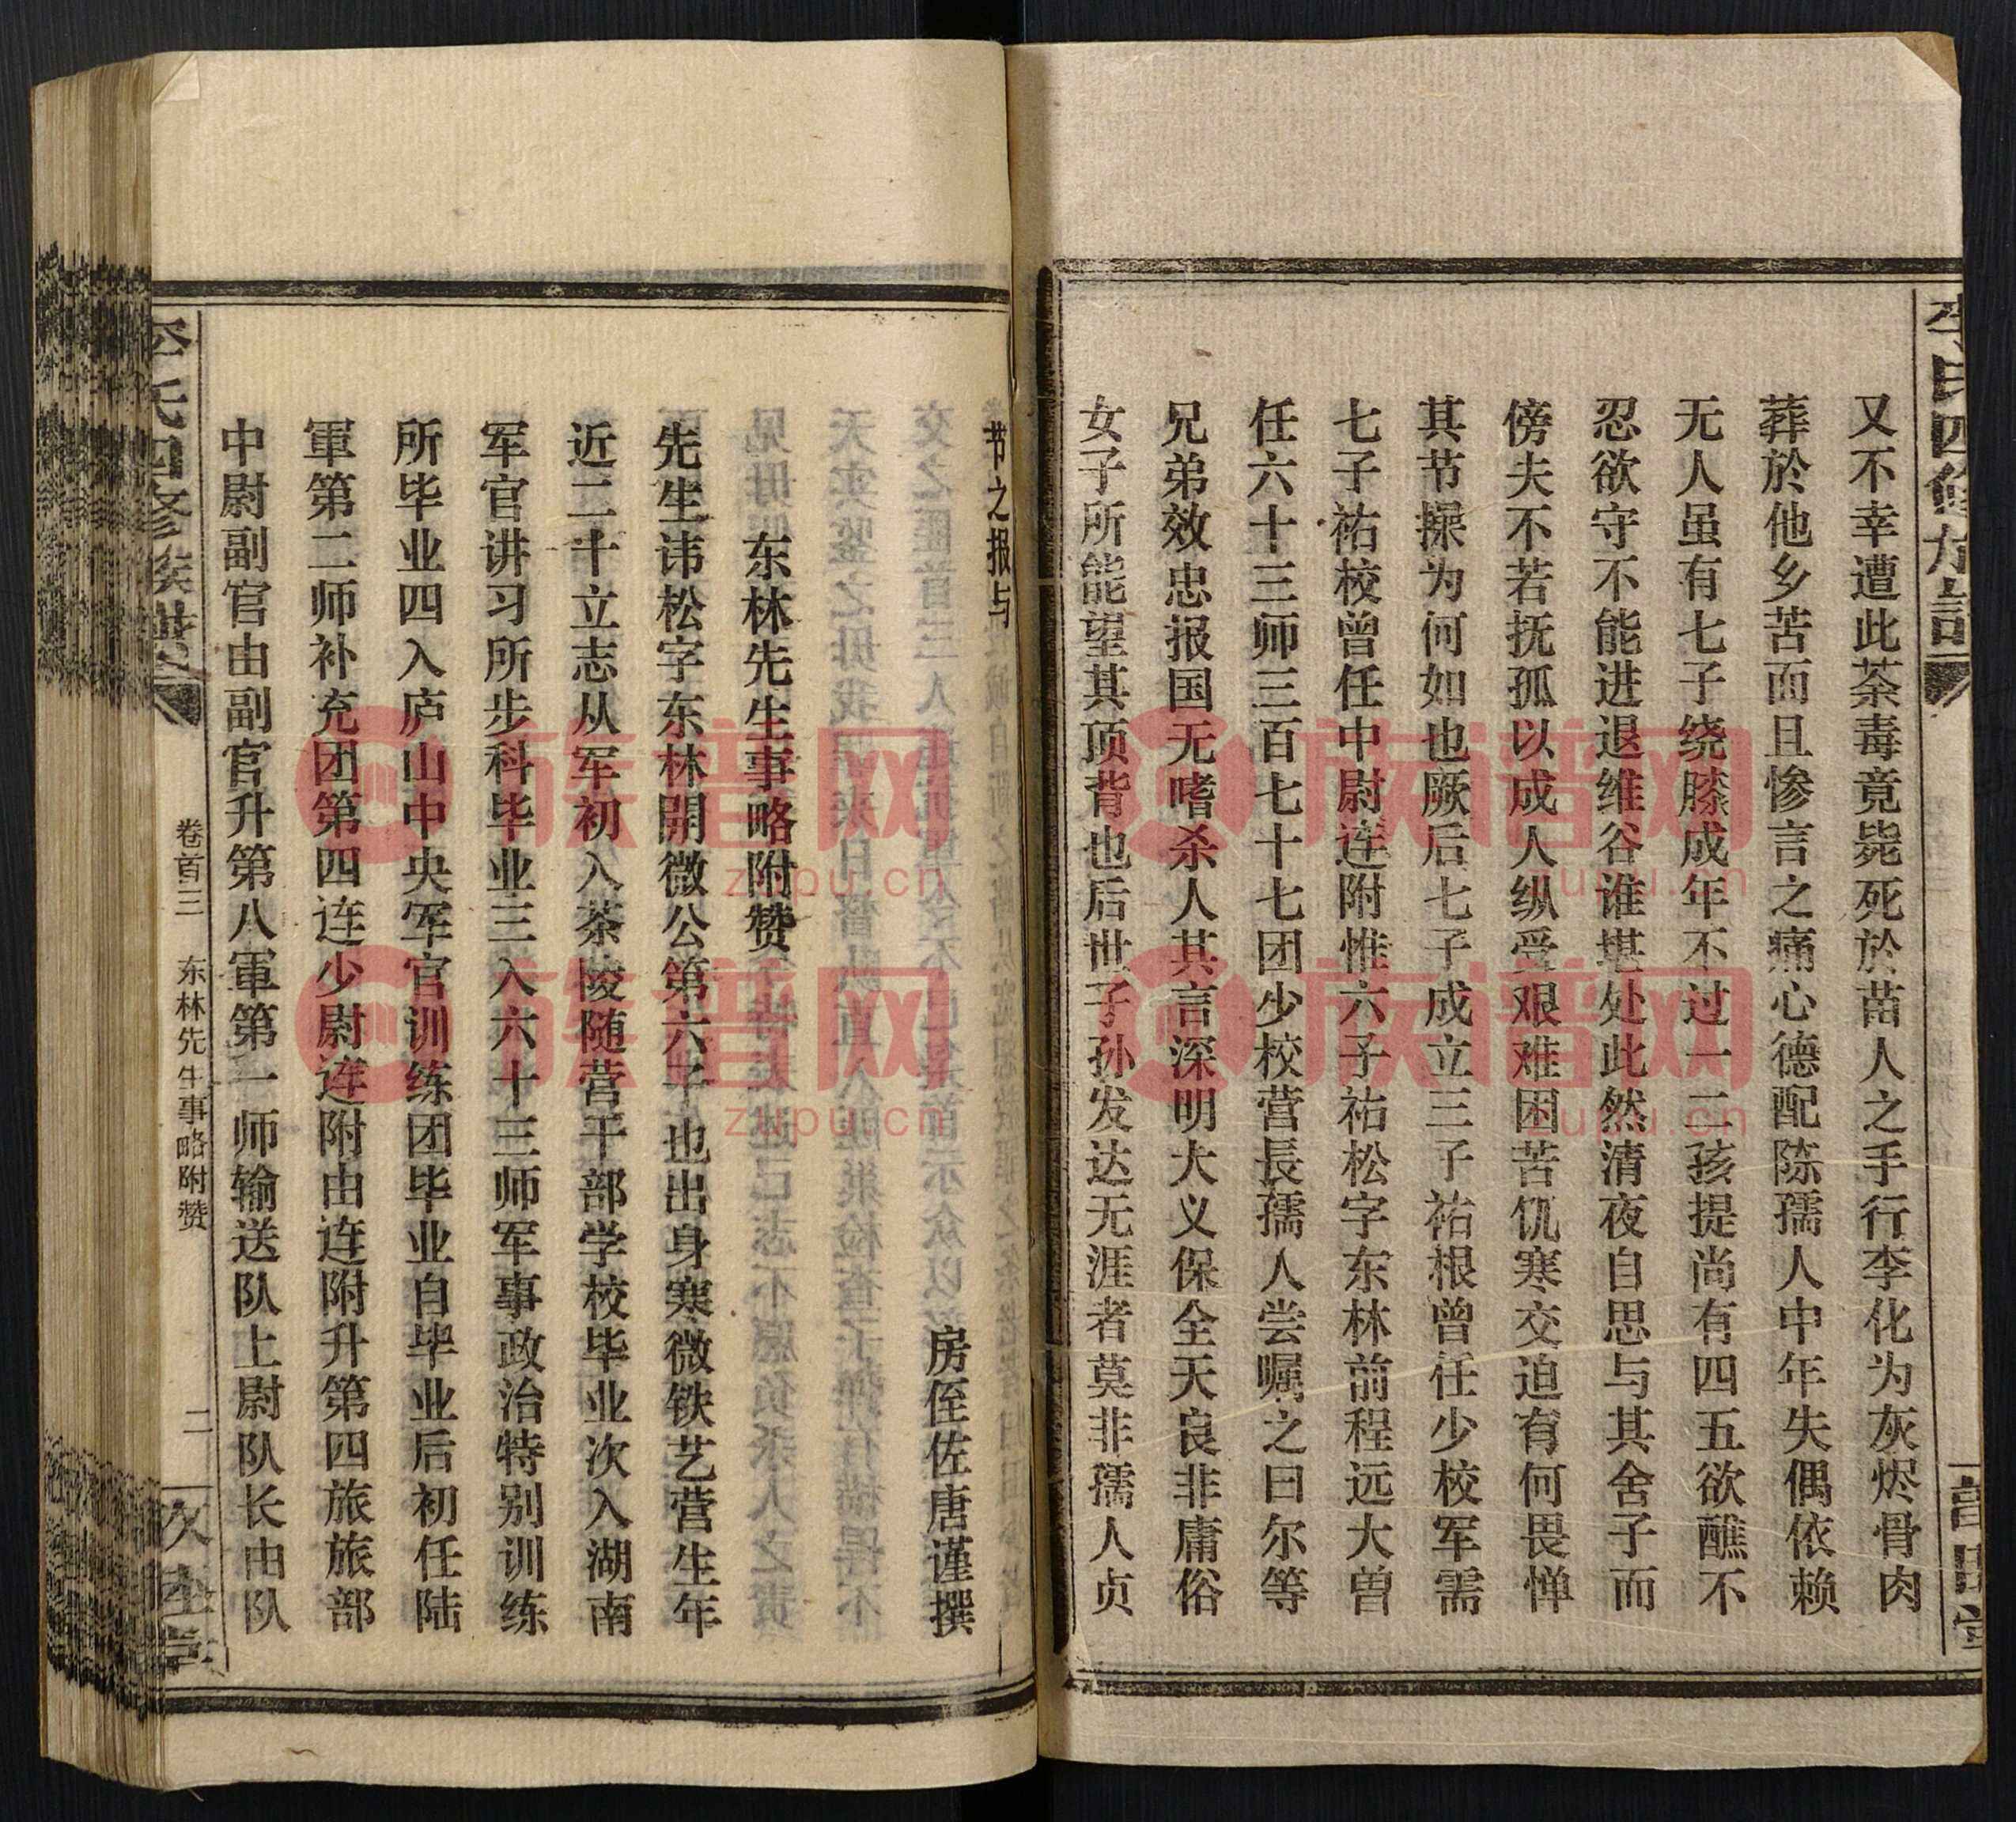 又不幸遭此荼毒竟毙死於苗人之手行李化为灰烬骨肉
葬於他乡苦而且惨言之痛心德配陈孺人中年失偶依赖
无人虽有七子绕膝成年不过一二孩提尚有四五欲醮不
忍欲守不能进退维谷谁堪处此然清夜自思与其舍子而
傍夫不若抚孤以成人纵受艰难困苦饥寒交迫有何畏惮
其节操为何如也厥后七子成立三子祐根曾任少校军需
七子祐校曾任中尉连附惟六子祐松字东林前程远大曾
任六十三师三百七十七团少校营長孺人尝嘱之曰尔等
兄弟效忠报国无嗜杀人其言深明大义保全天良非庸俗
女子所能望其顶背也后世子孙发达无涯者莫非孺人贞
节之报与
房侄佐唐谨撰
东林先生事略附赞
先生讳松字东林開微公第六子也出身寒微铁艺营生年
近二十立志从军初入茶陵随营干部学校毕业次入湖南
军官讲习所步科毕业三入六十三师军事政治特别训练
所毕业四入庐山中央军官训练团毕业自毕业后初任陆
軍第二师补充团第四连少尉连附由连附升第四旅旅部
中尉副官由副官升第八軍第一师输送队上尉队长由队
李氏四修族谱
卷首三
东林先生事略附赞
二
zupu.cn
族谱网
zupu.cn
族谱网
zupu.cn
族谱网
zupu.cn
族谱网